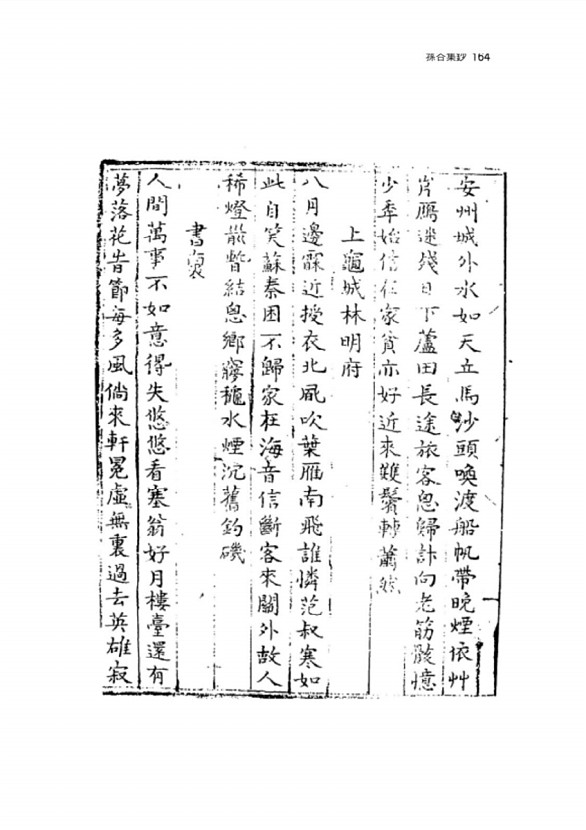 孫谷集鈔 164
安州城外水如天立馬沙頭喚渡船帆帶晚煙依艸
岸鴈迷殘日下蘆田長途旅客思歸計向老筋骸憶
少年始信在家貧亦好近來雙鬢轉蕭然
上龜城林明府
八月邊霜近授衣北風吹葉雁南飛誰憐范叔寒如
此自笑蘇秦困不歸家在海音信斷客來關外故人
稀燈前暫結思鄉夢穐水煙沉舊釣磯
書懷
人間萬事不如意得失悠悠看塞翁好月樓臺還有
夢落花時節每多風倘來軒冕虛無裏過去英雄寂